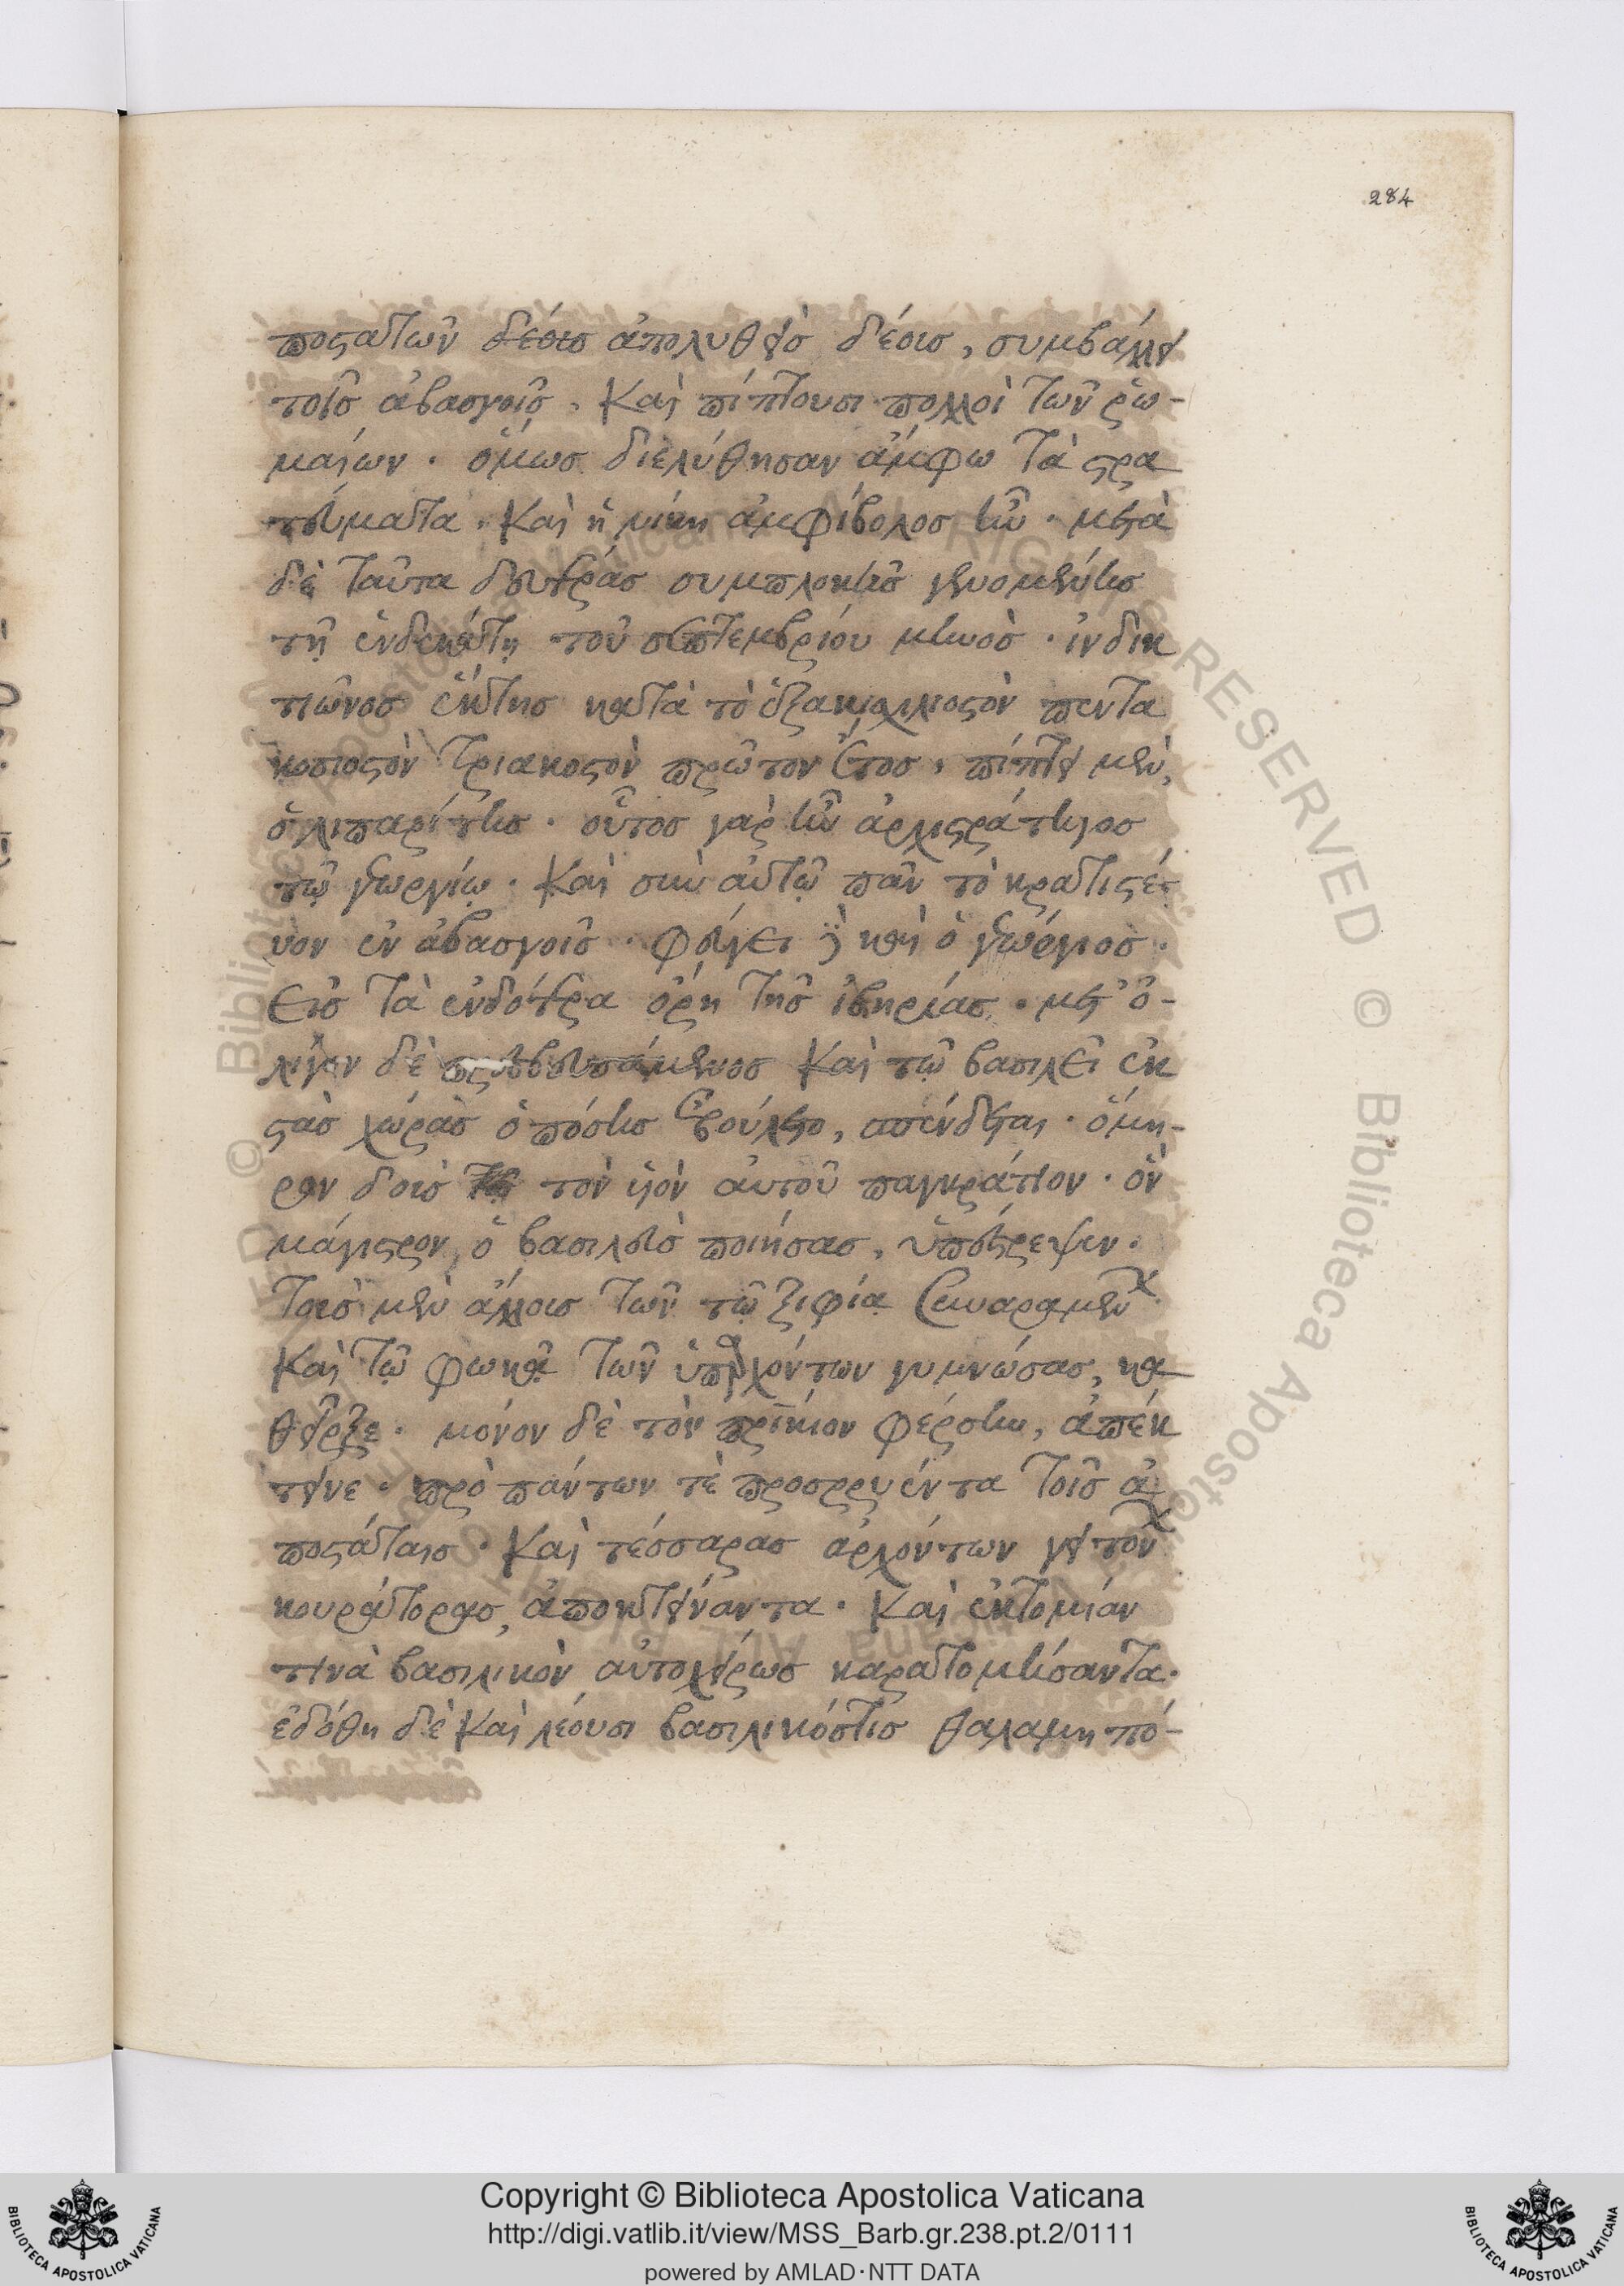 284
ποστατῶν δέοισ ἀπολυθεὶσ δέοισ, συμβάλλει
τοῖσ ἀβασγοῖσ. Καὶ πίπτουσι πολλοὶ τῶν ῥω-
μαίων. ὅμωσ διελύθησαν ἄμφω τὰ στρα
τεύματα. Καὶ ἡ νίκη ἀμφίβολοσ ἦν. μετὰ
δὲ ταῦτα δευτέρασ συμπλοκῆσ γενομένησ
τῇ ἑνδεκάτη τοῦ σεπτεμβρίου μηνὸσ. ἰνδικ
τιῶνοσ ἕκτησ κατὰ τὸ ἑξακισχιλιοστὸν πεντα
κοσιοστὸν τριακοστὸν πρῶτον ἔτοσ, πίπτει μὲν,
ὁ λιπαρίτησ. οὗτοσ γὰρ ἦν ἀρχιστράτηγοσ
τῷ γεωργίῳ. Καὶ σὺν αὐτῷ πᾶν τὸ κρατιστεύ
ον ἐν ἀβασγοῖσ. φεύγει δὲ καὶ ὁ γεώργιοσ.
εἰσ τὰ ἐνδότερα ὄρη τῆσ ἰβηρίασ. μετ' ὀ-
λίγον δὲ πρεσβευσάμενοσ Καὶ τῷ βασιλεῖ ἐκ
στὰσ χώρασ ὁπόσησ ἐβούλετο, σπένδεται. ὅμη-
ρον δοὺσ τὸν ὑὸν αὐτοῦ παγκράτιον. ὃν
μάγιστρον, ὁ βασιλεὺσ ποιήσασ, ὑπέστρεψεν.
Τοὺσ μὲν ἄλλουσ τῶν τῷ ξιφίᾳ συναραμέν
Καὶ τῷ φωκᾷ τῶν ὑπαρχόντων γυμνώσασ, κα
θεῖρξε. μόνον δὲ τὸν πρίκιον φέρσην, ἀπέκ
τεινε. πρὸ πάντων τὲ προσρρυέντα τοῖσ ἀ
ποστάταισ. Καὶ τέσσαρασ ἀρχόντων γειτον
κουράτορασ, ἀποκτείναντα. Καὶ ἐκτομίαν
τινὰ βασιλικὸν αὐτοχείρωσ καρατομήσαντα.
ἐδόθη δὲ Καὶ λέουσι βασιλικόστισ θαλαμηπό-
Copyright © Biblioteca Apostolica Vaticana
http://digi.vatlib.it/view/MSS_Barb.gr.238.pt.2/0111
powered by AMLAD·NTT DATA
BIBLIOTECA APOSTOLICA VATICANA
BIBLIOTECA APOSTOLICA VATICANA